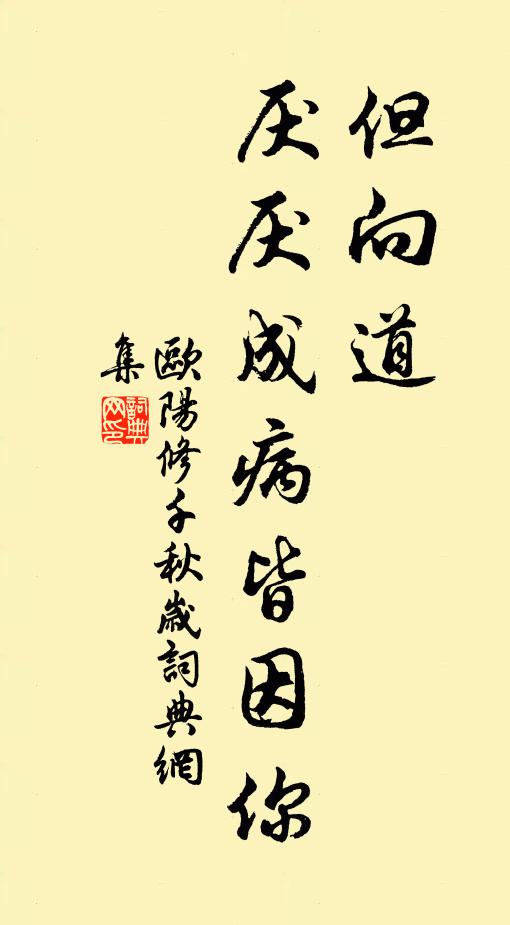 但向道
厌厌成病皆因你
歐陽修千秋歲詞典網
集
詞典
网印